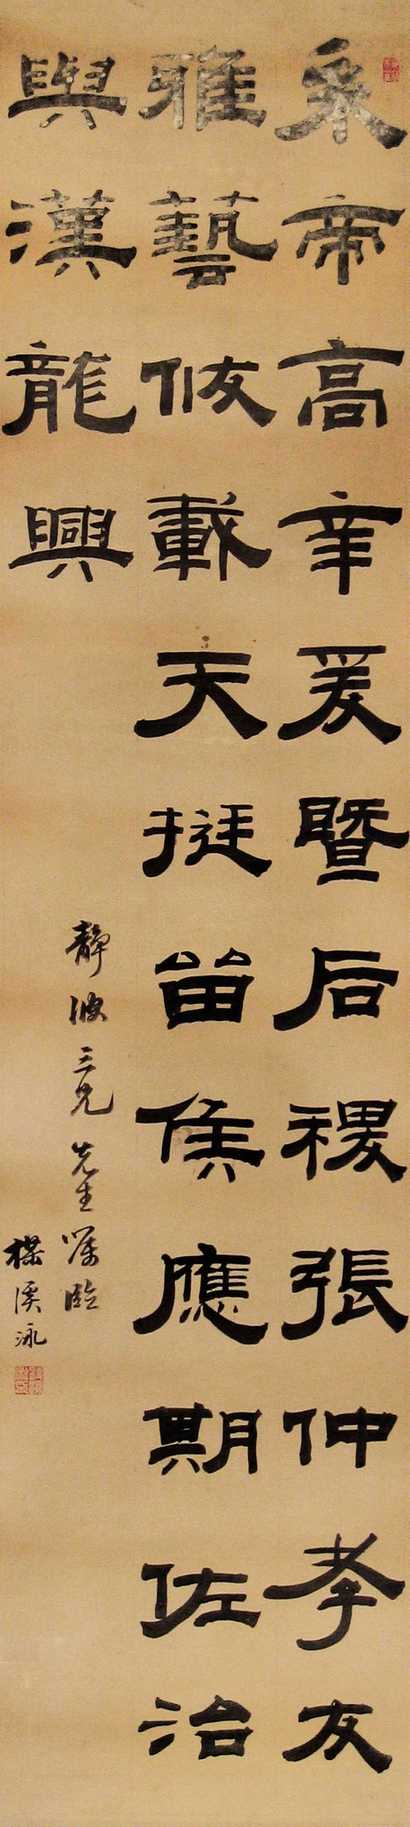 系帝高辛爰暨后稷張仲孝友
雅藝攸載天挺留侯應期佐治
與漢龍興
靜波三兄先生屬臨
楳溪泳